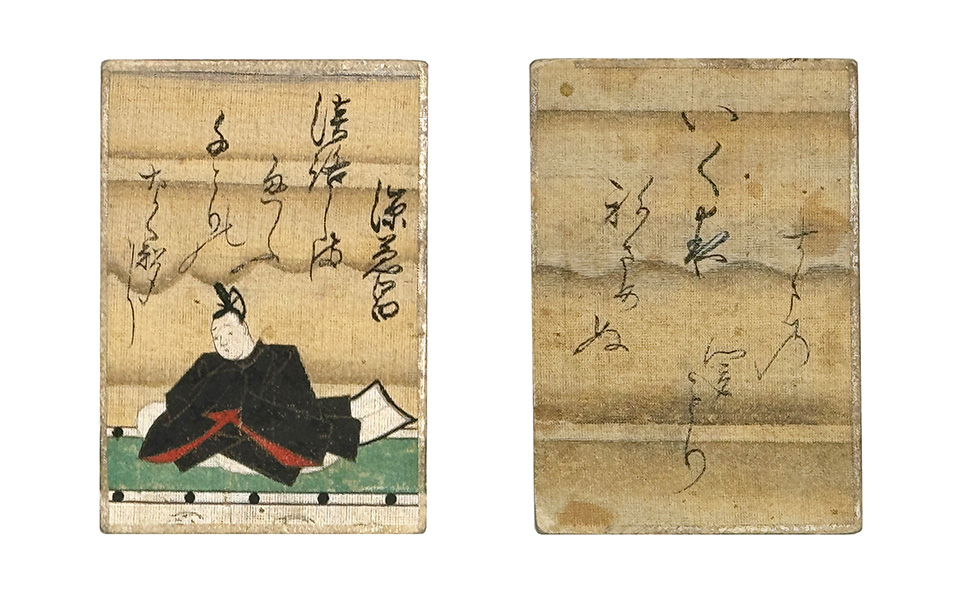 源兼昌
淡路しま
かよふ
千とりの
なく聲に
いく夜
ねさめぬ
すまの
関もり